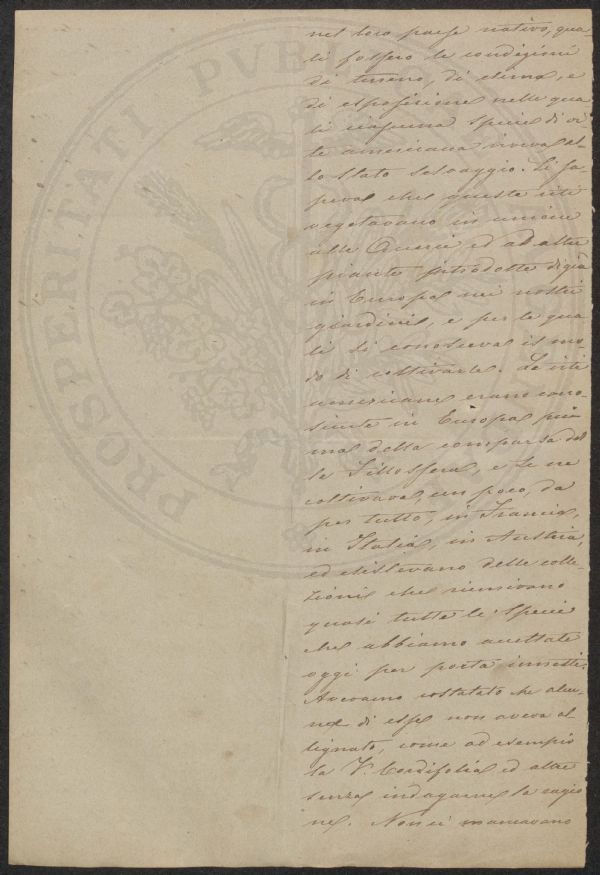 PROSPERITATI PVBL
nel loro paese nativo, qua
li fossero le condizioni
di terreno, di clima, e
di esposizione nelle qua
li ciascuna specie di vi-
te americana viveva al-
lo stato selvaggio. Si sa-
peva che queste viti
vegetavano in unione
alle Querce ed ad altre
piante introdotte di già
in Europa nei nostri
giardini, e per le qua
li si conosceva il mo-
do di coltivarle. Le viti
americane erano cono-
sciute in Europa pri
ma della comparsa del
la Fillossera, e se ne
coltivava, un poco, da
per tutto, in Francia,
in Italia, in Austria,
ed esistevano delle colle-
zioni che riunivano
quasi tutte le specie
che abbiamo accettate
oggi per porta innesti.
Avevamo costatato che alcu-
ne di esse non aveva al
lignato, come ad esempio
la V. Cordifolia ed altre
senza indagarne la ragio
ne. Non ci mancavano